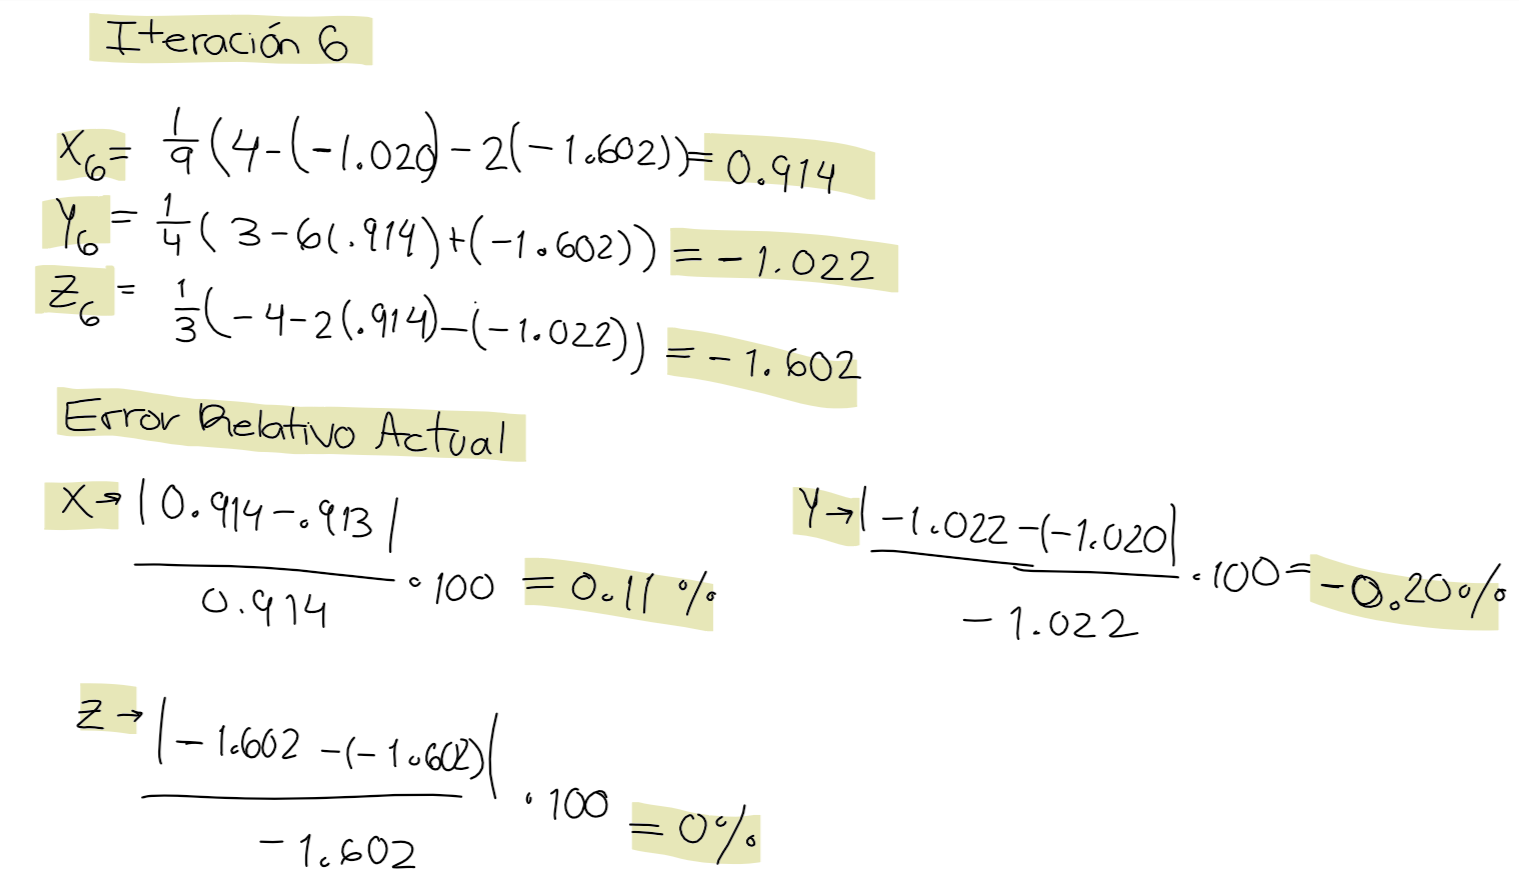 Iteración 6
X₆ = 1/9 (4-(-1.020)-2(-1.602)) = 0.914
Y₆ = 1/4 (3-6(.914)+(-1.602)) = -1.022
Z₆ = 1/3 (-4-2(.914)-(-1.022)) = -1.602
Error Relativo Actual
X→ |0.914-.913| / 0.914 · 100 = 0.11%
Y→ |-1.022-(-1.020| / -1.022 · 100 = -0.20%
Z→ |-1.602-(-1.602)| / -1.602 · 100 = 0%